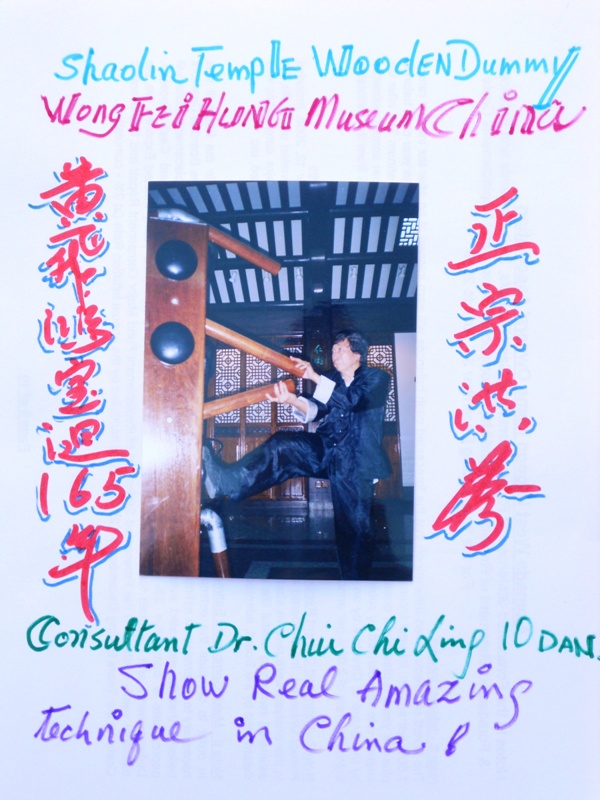 Shaolin TempLE WoodEN Dummy
Wong FZi HUNG Museum China
黄飛鴻宝165年
正宗洪拳
Consultant Dr. Chiu Chi Ling 10 DAN.
Show Real Amazing
Technique in China !